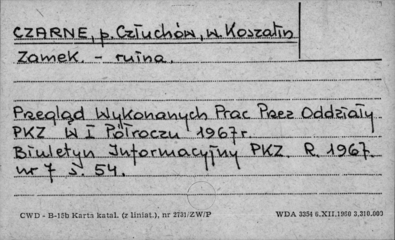 CZARNE, p. Człuchów, w. Koszalin
Zamek. - ruina.
Przegląd Wykonanych Prac Przez Oddziały
PKZ W I Półroczu 1967r.
Biuletyn Informacyjny PKZ. R. 1967.
nr 7 s. 54.
CWD - B-15b Karta katal. (z liniat.), nr 2731/ZW/P
WDA 3354 6.XII.1960 3.210.000